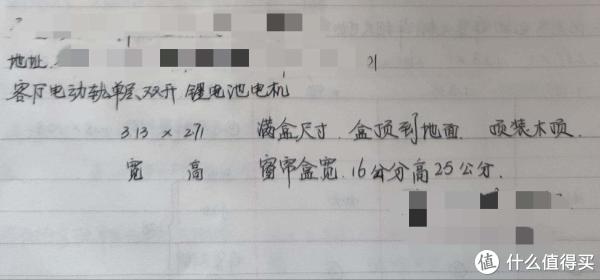 地址
客厅电动轨单层双开 锂电池电机
313 × 271 满盒尺寸. 盒顶到地面. 顶装木顶.
宽 高 窗帘盒宽. 16公分高25公分.
值 什么值得买